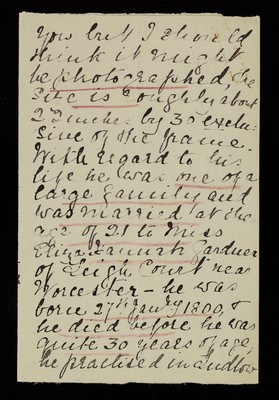 you but I should
think it might
be photographed, the
size is roughly about
2½ inches by 3 exclu-
sive of the frame.
With regard to his
life he was one of a
large family and
was married at the
age of 21 to Miss
Eliza Hannah Gardner
of Leigh Court near
Worcester – he was
born 27th Janry 1800, &
he died before he was
quite 30 years of age,
he practised in Ludlow